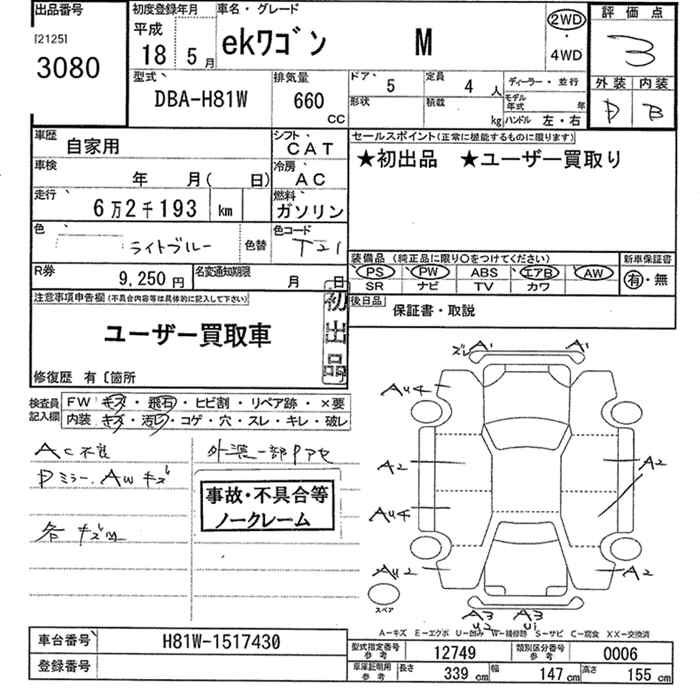 出品番号
[2125]
3080
初度登録年月
平成
18 5月
車名・グレード
ekワゴン M
2WD
・
4WD
評価点
3
外装 内装
D B
型式
DBA-H81W
排気量
660
CC
ドア 5
定員 4 人
形状
積載 kg
ディーラー・並行
モデル年式 年
ハンドル 左・右
車歴 自家用
シフト CAT
車検 年 月( 日)
冷房 AC
走行 6万2千193 km
燃料 ガソリン
色 ライトブルー
色替
色コード T21
R券 9,250円
名変通知期限 月 日
セールスポイント(正常に機能するものに限ります)
★初出品 ★ユーザー買取り
装備品(純正品に限り○をつけてください)
PS PW ABS エアB AW
SR ナビ TV カワ
新車保証書
有・無
後日品 保証書・取説
注意事項申告欄(不具合内容等は具体的に記入して下さい)
ユーザー買取車
初出品
修復歴 有〔箇所
検査員記入欄
FW キズ・飛石・ヒビ割・リペア跡・×要
内装 キズ・汚レ・コゲ・穴・スレ・キレ・破レ
AC不良
Dミラー、AWキズ
外装一部ヤケ
事故・不具合等
ノークレーム
ズレ A' A'
AU4
A2 A2
AU4
AU2 A2
スペア
A3 A3
U2 U1
A-キズ E-エクボ U-凹み W-補修跡 S-サビ C-腐食 XX-交換済
車台番号 H81W-1517430
登録番号
型式指定番号参考 12749
類別区分番号参考 0006
車庫証明用参考 長さ 339cm 幅 147cm 高さ 155cm